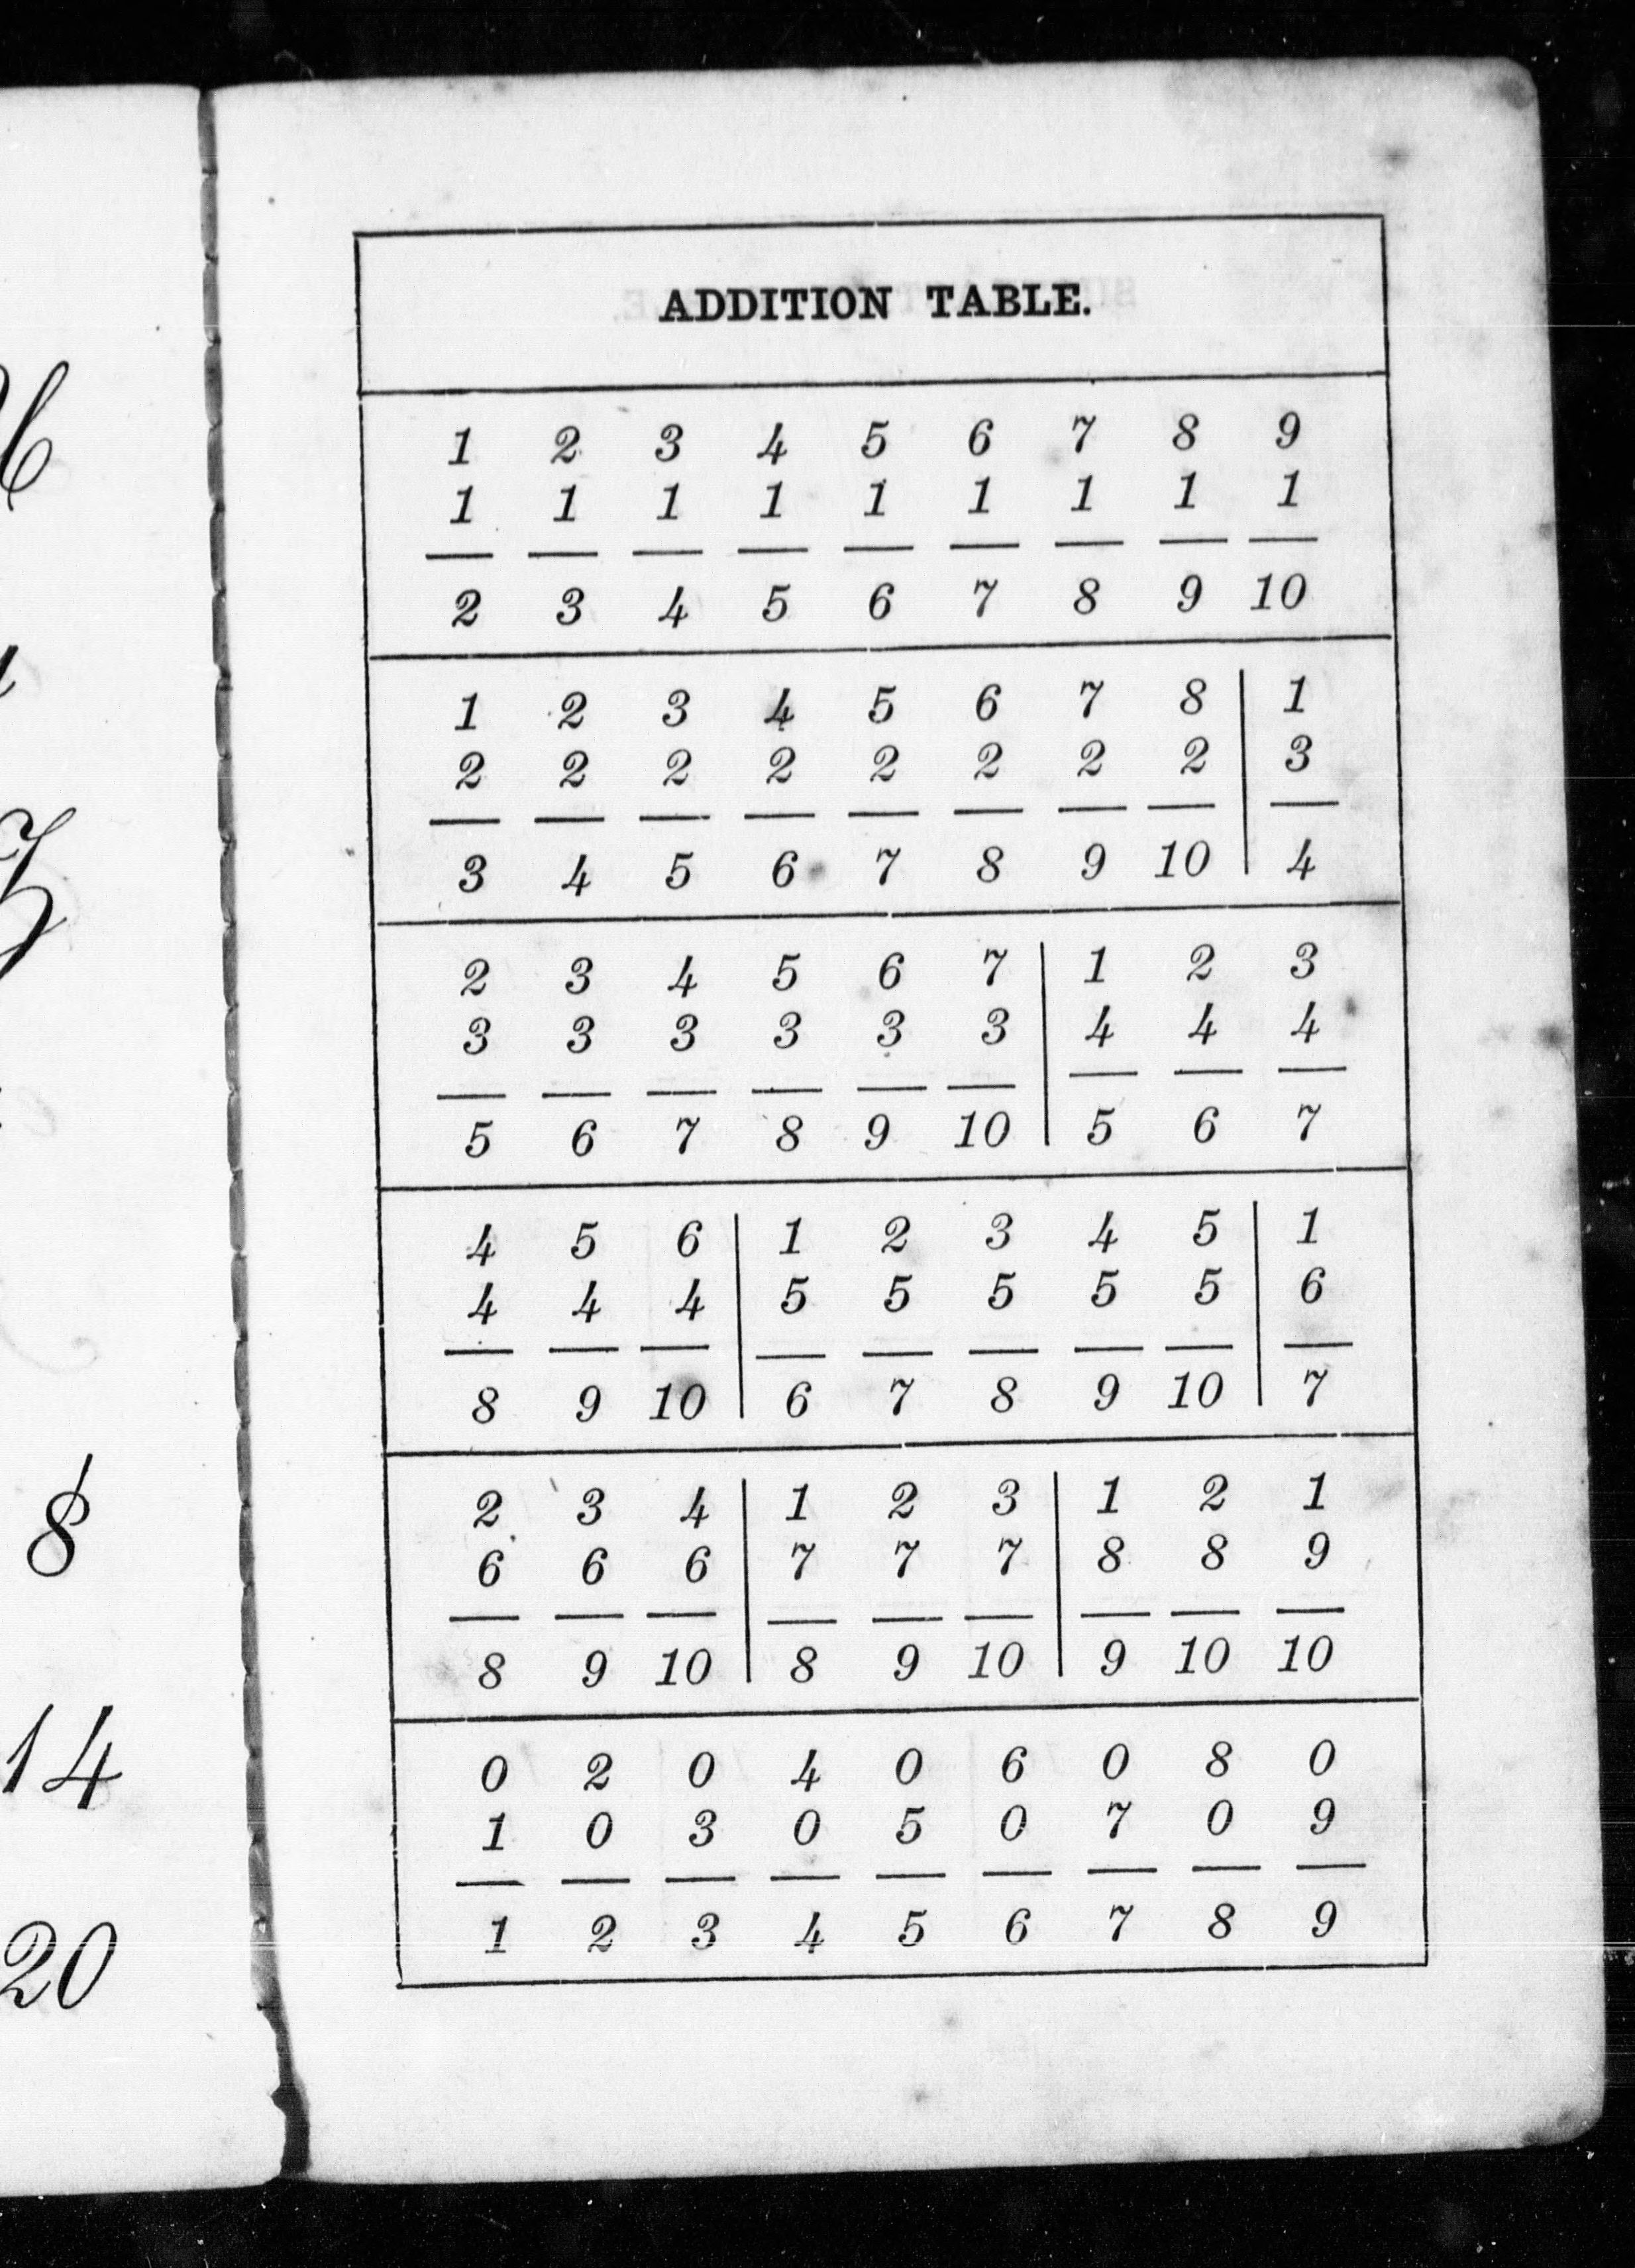 8
14
20
ADDITION TABLE.
1 2 3 4 5 6 7 8 9
1 1 1 1 1 1 1 1 1
2 3 4 5 6 7 8 9 10
1 2 3 4 5 6 7 8 1
2 2 2 2 2 2 2 2 3
3 4 5 6 7 8 9 10 4
2 3 4 5 6 7 1 2 3
3 3 3 3 3 3 4 4 4
5 6 7 8 9 10 5 6 7
4 5 6 1 2 3 4 5 1
4 4 4 5 5 5 5 5 6
8 9 10 6 7 8 9 10 7
2 3 4 1 2 3 1 2 1
6 6 6 7 7 7 8 8 9
8 9 10 8 9 10 9 10 10
0 2 0 4 0 6 0 8 0
1 0 3 0 5 0 7 0 9
1 2 3 4 5 6 7 8 9